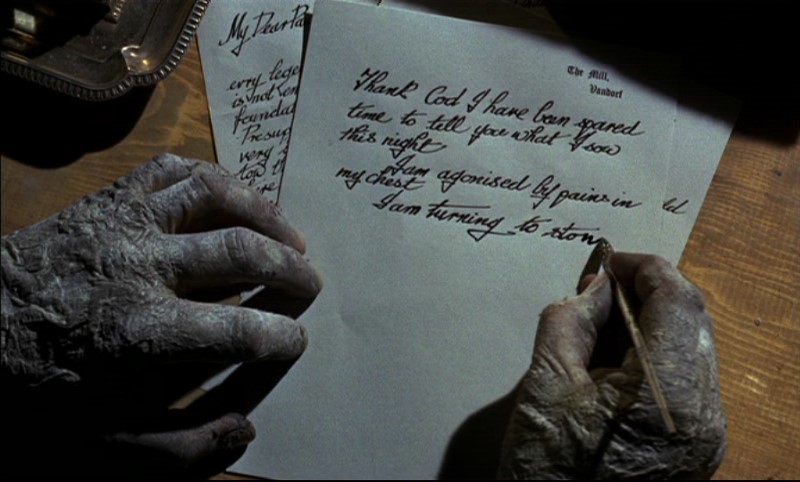 My Dear Pa
erry lege
is not en
founda
Presup
very
tow t
here
The Mill,
Vandorf
Thank God I have been spared
time to tell you what I saw
this night
I am agonised by pains in
my chest
I am turning to ston
ld